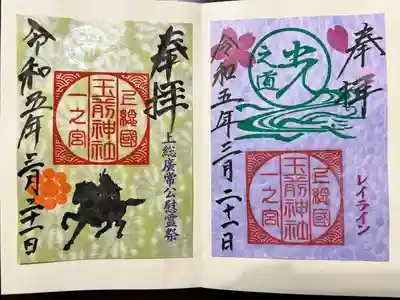 奉拝
上総國
玉前神社
一之宮
上総廣常公慰霊祭
令和五年三月二十一日
奉拝
光
之道
上総國
玉前神社
一之宮
レイライン
令和五年三月二十一日